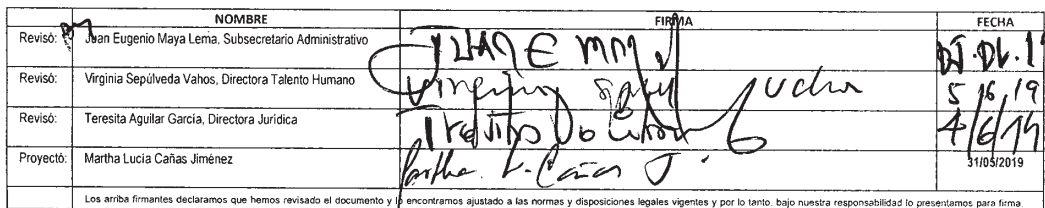 NOMBRE FIRMA FECHA
Revisó: Juan Eugenio Maya Lema, Subsecretario Administrativo JUAN E
Revisó: Virginia Sepúlveda Vahos, Directora Talento Humano 5/6/19
Revisó: Teresita Aguilar García, Directora Jurídica 4/6/19
Proyectó: Martha Lucía Cañas Jiménez Martha L. Cañas J. 31/05/2019
Los arriba firmantes declaramos que hemos revisado el documento y lo encontramos ajustado a las normas y disposiciones legales vigentes y por lo tanto, bajo nuestra responsabilidad lo presentamos para firma.